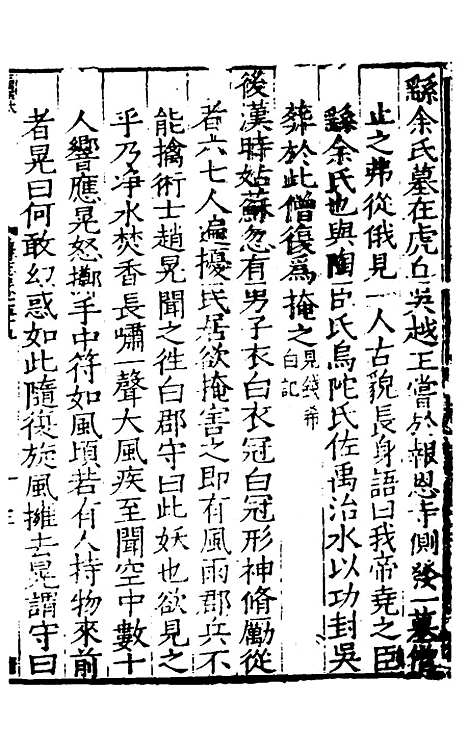 繇余氏墓在虎丘吳越王嘗於報恩寺側發一墓僧
止之弗從俄見一人古貌長身語曰我帝堯之臣
繇余氏也與陶臣氏烏陀氏佐禹治水以功封吳
葬於此僧復爲掩之見錢希白記
後漢時姑蘇忽有男子衣白衣冠白冠形神脩勵從
者六七人遍擾民居欲掩害之即有風雨郡兵不
能擒術士趙晃聞之徃白郡守曰此妖也欲見之
乎乃净水焚香長嘯一聲大風疾至聞空中數十
人響應晃怒擲手中符如風頃若有人持物來前
者晃曰何敢幻惑如此隨復旋風擁去晃謂守曰